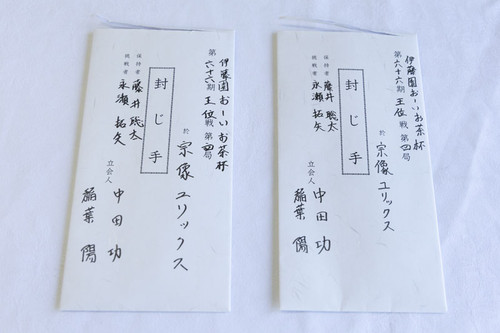 伊藤園おーいお茶杯
第六十六期王位戦 第四局
保持者 藤井 聡太
挑戦者 永瀬 拓矢
封じ手
於 宗像ユリックス
立会人 中田 功
稲葉 陽
伊藤園おーいお茶杯
第六十六期王位戦 第四局
保持者 藤井 聡太
挑戦者 永瀬 拓矢
封じ手
於 宗像ユリックス
立会人 中田 功
稲葉 陽